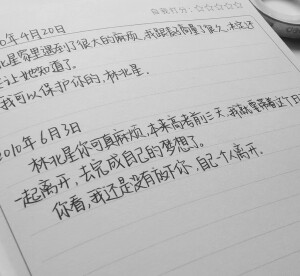 自我打分：☆☆☆☆☆
0年4月20日
北星家里遇到了很大的麻烦，我跟量了很久，
让她知道了。
我可以保护你的，林北星．
2010年6月3日
林北星你可真麻烦，本来高考前三天，我就
一起离开，去完成自己的梦想了。
你看，我还是没有放弃你，自己一个人离开．